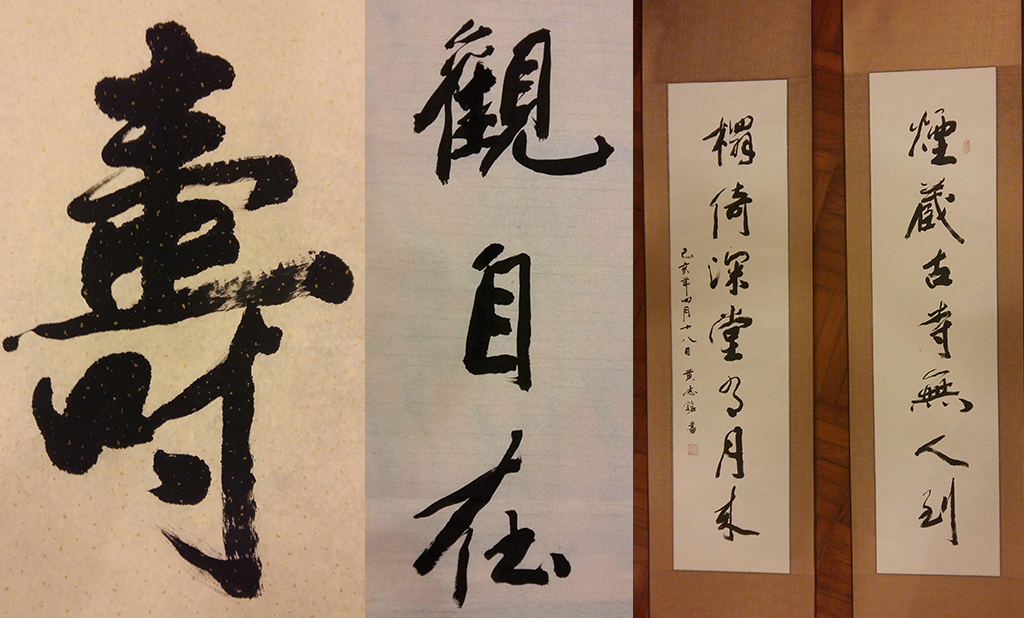 壽
觀自在
煙藏古寺無人到
榻倚深堂有月来
己亥年四月十八日 黄志銘書